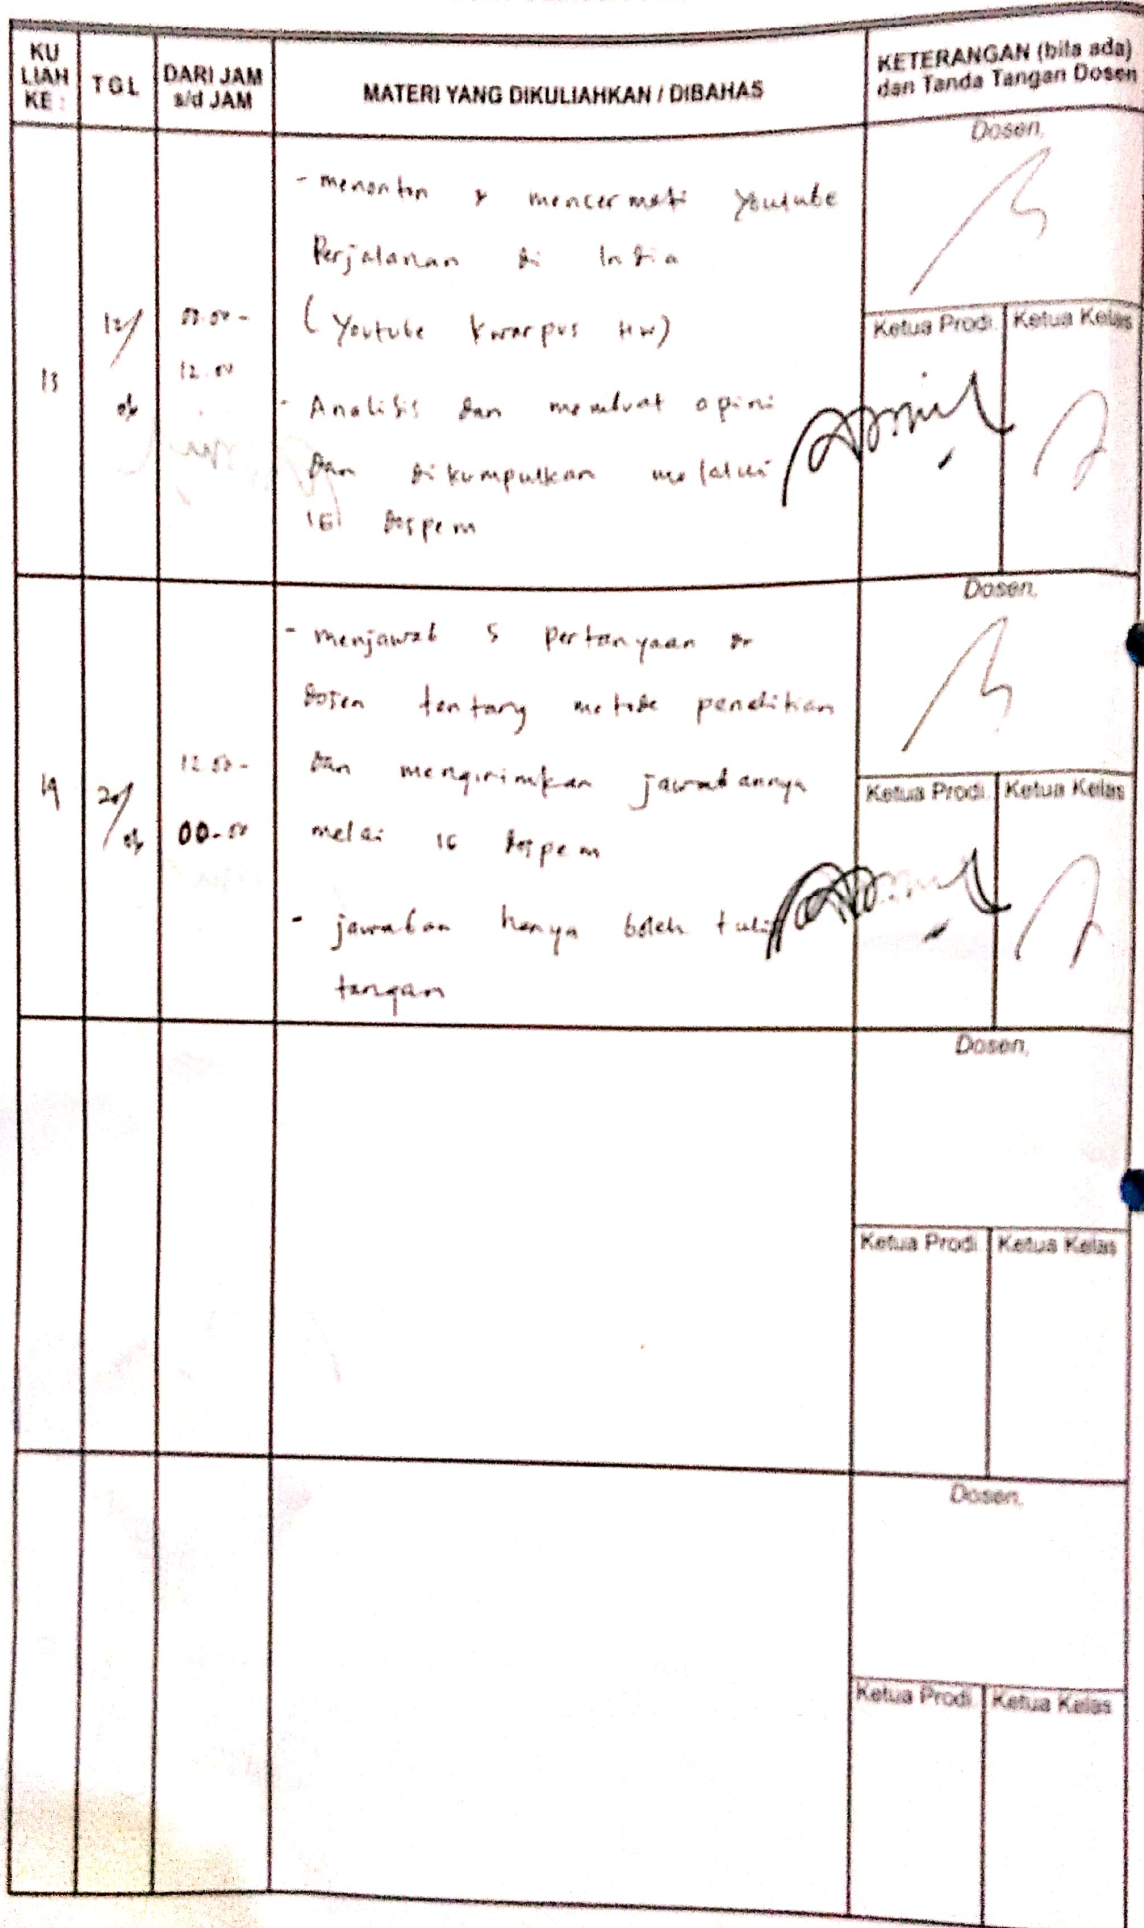 KU
LIAH
KE :
TGL
DARI JAM
s/d JAM
MATERI YANG DIKULIAHKAN / DIBAHAS
KETERANGAN (bila ada)
dan Tanda Tangan Dosen
13
12/
12.00
- menonton & mencermati Youtube
Perjalanan di India
(Youtube Kwarpus HW)
- Analisis dan membuat opini
dan dikumpulkan melalui
IG dospem
Dosen,
Ketua Prodi.
Ketua Kelas
14
20/
12.00 -
00.00
- menjawab 5 pertanyaan dr
dosen tentang metode penelitian
dan mengirimkan jawabannya
melai IG dospem
- jawaban hanya boleh tulis
tangan
Dosen,
Ketua Prodi.
Ketua Kelas
Dosen,
Ketua Prodi
Ketua Kelas
Dosen,
Ketua Prodi
Ketua Kelas